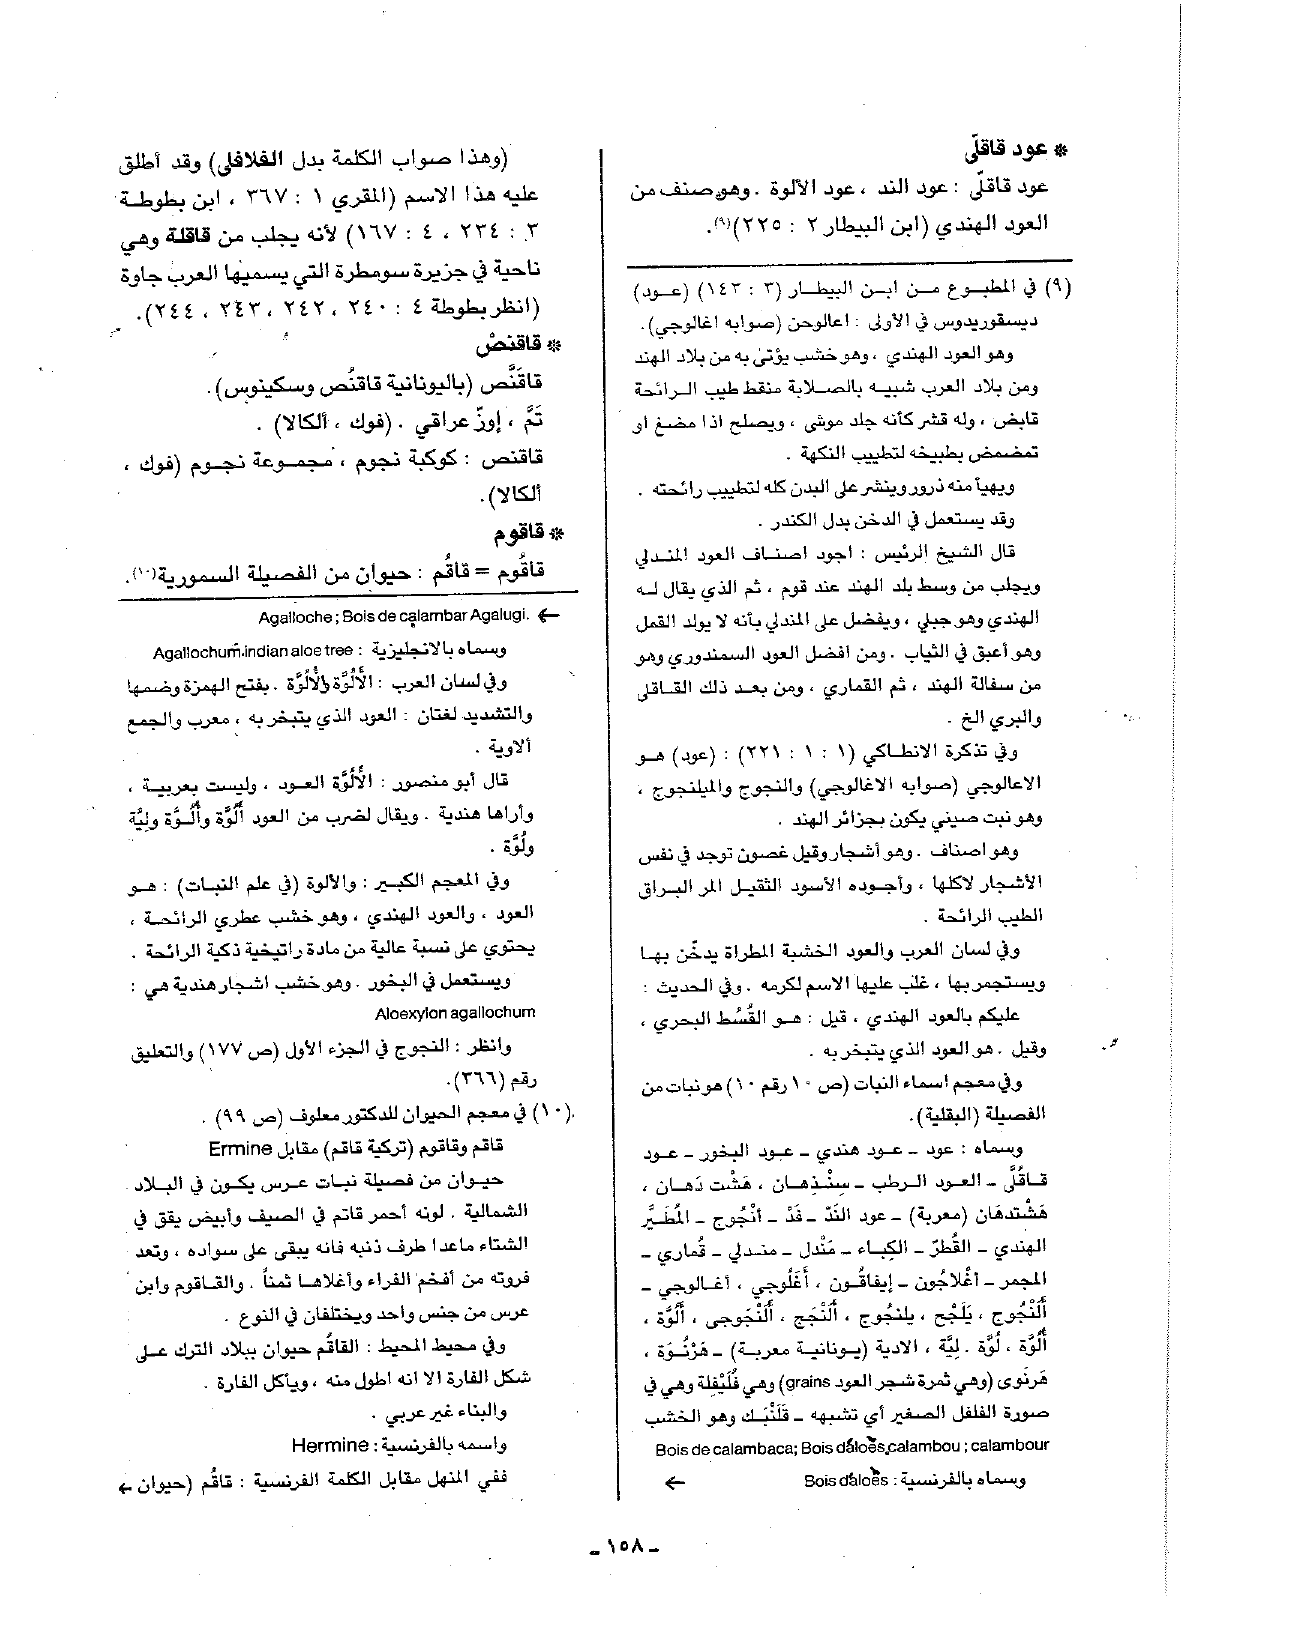 * عود قاقلّى
عود قاقلّى : عود الند ، عود الألوة . وهو صنف من
العود الهندي (ابن البيطار ٢ : ٢٢٥)(٩).
(٩) في المطبوع من ابن البيطار (٣ : ١٤٣) (عود)
ديسقوريدوس في الأولى : اعالوحن (صوابه اغالوجي).
وهو العود الهندي ، وهو خشب يؤتى به من بلاد الهند
ومن بلاد العرب شبيه بالصلابة منقط طيب الرائحة
قابض ، وله قشر كأنه جلد موشى ، ويصلح اذا مضغ او
تمضمض بطبيخه لتطييب النكهة .
ويهيأ منه ذرور وينشر على البدن كله لتطييب رائحته .
وقد يستعمل في الدخن بدل الكندر .
قال الشيخ الرئيس : اجود اصناف العود المندلي
ويجلب من وسط بلد الهند عند قوم ، ثم الذي يقال له
الهندي وهو جبلي ، ويفضل على المندلي بأنه لا يولد القمل
وهو أعبق في الثياب . ومن افضل العود السمندوري وهو
من سفالة الهند ، ثم القماري ، ومن بعد ذلك القاقلي
والبري الخ .
وفي تذكرة الانطاكي (١ : ١ : ٢٢١) : (عود) هو
الاعالوجي (صوابه الاغالوجي) والنجوج والميلنجوج ،
وهو نبت صيني يكون بجزائر الهند .
وهو اصناف . وهو أشجار وقيل غصون توجد في نفس
الأشجار لاكلها ، وأجوده الأسود الثقيل المر البراق
الطيب الرائحة .
وفي لسان العرب والعود الخشبة المطراة يدخّن بها
ويستجمر بها ، غلب عليها الاسم لكرمه . وفي الحديث :
عليكم بالعود الهندي ، قيل : هو القُسْط البحري ،
وقيل . هو العود الذي يتبخر به .
وفي معجم اسماء النبات (ص ١٠ رقم ١٠) هو نبات من
الفصيلة (البقلية).
وسماه : عود ـ عود هندي ـ عود البخور ـ عود
قاقُلَّى ـ العود الرطب ـ سِنْدِهان ، هَشْت دَهان ،
هَشْتدهَان (معربة) ـ عود النَدّ ـ فَدّ ـ أنْجُوج ـ المُطَيَّر
الهندي ـ القُطرّ ـ الكباء ـ مَنْدل ـ مندلي ـ قُماري ـ
المجمر ـ أغْلاجُون ـ إيفاقُون ، أَغَلُوجي ، أغالوجي ـ
ألَنْجُوج ، يَلَجْج ، يلنجوج ، ألَنْجَج ، ألَنْجُوجى ، ألُوَّة ،
أُلُوَّة ، لُوَّة . لِيَّة ، الادية (يونانية معربة) ـ هَرْنُوَة ،
هَرنَوى (وهي ثمرة شجر العود grains) وهي فُلَيْفِلة وهي في
صورة الفلفل الصغير أي تشبهه ـ قَلَنْبَك وهو الخشب
Bois de calambaca; Bois d'aloès, calambou ; calambour
وسماه بالفرنسية : Bois d'aloès ←
(وهذا صواب الكلمة بدل الفلافلي) وقد أطلق
عليه هذا الاسم (المقري ١ : ٣٦٧ ، ابن بطوطة
٣ : ٢٣٤ ، ٤ : ١٦٧) لأنه يجلب من قاقلة وهي
ناحية في جزيرة سومطرة التي يسميها العرب جاوة
(انظر بطوطة ٤ : ٢٤٠ ، ٢٤٢ ، ٢٤٣ ، ٢٤٤).
* قاقنصْ
قاقَنَّص (باليونانية قاقنُص وسكينوس).
تَمَّ ، إوزّ عراقي . (فوك ، ألكالا) .
قاقنص : كوكبة نجوم ، مجموعة نجوم (فوك ،
ألكالا).
* قاقوم
قاقُوم = قاقُم : حيوان من الفصيلة السمورية(١٠).
← Agalloche ; Bois de calambar Agalugi.
وسماه بالانجليزية : Agallochum, indian aloe tree
وفي لسان العرب : الأَلُوَّة والأُلُوَّة . بفتح الهمزة وضمها
والتشديد لغتان : العود الذي يتبخر به ، معرب والجمع
ألاوية .
قال أبو منصور : الأَلُوَّة العود ، وليست بعربية ،
وأراها هندية . ويقال لضرب من العود أَلُوَّة وأُلُوَّة ولِيَّة
ولُوَّة .
وفي المعجم الكبير : والالوة (في علم النبات) : هو
العود ، والعود الهندي ، وهو خشب عطري الرائحة ،
يحتوي على نسبة عالية من مادة راتيخية ذكية الرائحة .
ويستعمل في البخور . وهو خشب اشجار هندية هي :
Aloexylon agallochum
وانظر : النجوج في الجزء الأول (ص ١٧٧) والتعليق
رقم (٣٦٦).
(١٠) في معجم الحيوان للدكتور معلوف (ص ٩٩) .
قاقم وقاقوم (تركية قاقم) مقابل Ermine
حيوان من فصيلة نبات عرس يكون في البلاد
الشمالية . لونه أحمر قاتم في الصيف وأبيض يقق في
الشتاء ماعدا طرف ذنبه فانه يبقى على سواده ، وتعد
فروته من أفخم الفراء وأغلاها ثمناً . والقاقوم وابن
عرس من جنس واحد ويختلفان في النوع .
وفي محيط المحيط : القاقُم حيوان ببلاد الترك على
شكل الفارة الا انه اطول منه ، ويأكل الفارة .
والبناء غير عربي .
واسمه بالفرنسية : Hermine
ففي المنهل مقابل الكلمة الفرنسية : قاقُم (حيوان ←
ـ ١٥٨ ـ